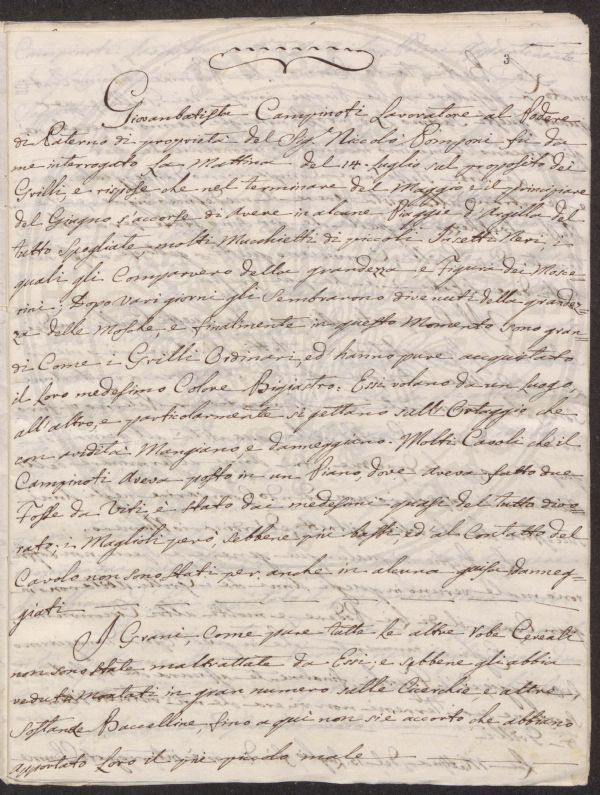 3
Giovanbatista Campinoti Lavoratore al Podere
di Paterno di proprietà del Sigr. Niccolò Pomponi fù da
me interrogato La Mattina del 14. Luglio sul proposito dei
Grilli, e rispose che nel terminare del Maggio e il principiare
del Giugno s'accorse di avere in alcune Piaggie d'Argilla del
tutto Spogliate molti Mucchietti di piccoli Insetti Neri, i
quali gli Comparvero della grandezza e Figura dei Mosce=
rini; Dopo vari giorni gli Sembrarono divenuti della grandez=
za delle Mosche, e finalmente in questo Momento sono gran=
di Come i Grilli Ordinari, ed hanno pure acquistato
il Loro medesimo Colore Bigiastro: Essi volano da un Luogo
all'altro, e particolarmente si gettano sull'Ortaggio che
con avidità Mangiano, e danneggiano. Molti Cavoli che il
Campinoti Aveva posto in un Piano, dove Aveva fatto due
Fosse da Viti, è stato dai medesimi quasi del tutto divo=
rato; i Maglioli però, sebbene più bassi ed al Contatto del
Cavolo non sono stati per anche in alcuna guisa danneg=
giati
I Grani, come pure tutte le altre robe Cereali
non sono state maltrattate da Essi; e sebbene gli abbia
veduti in gran numero sulle Cicerchie e altre
Sostanze Baccelline, fino a qui non si è accorto che abbiano
apportato Loro il più piccolo male